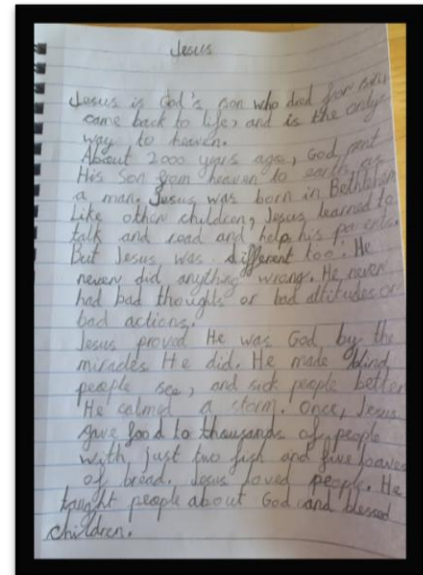 Jesus
Jesus is God's son who died for sin
came back to life, and is the only
way to heaven.
About 2000 years ago, God sent
His Son from heaven to earth as
a man. Jesus was born in Bethlehem
Like other children, Jesus learned to
talk and read and help his parents.
But Jesus was different too. He
never did anything wrong. He never
had bad thoughts or bad attitudes or
bad actions.
Jesus proved He was God by the
miracles He did. He made blind
people see, and sick people better
He calmed a storm. Once, Jesus
gave food to thousands of people
with just two fish and five loaves
of bread. Jesus loved people. He
taught people about God and blessed
children.